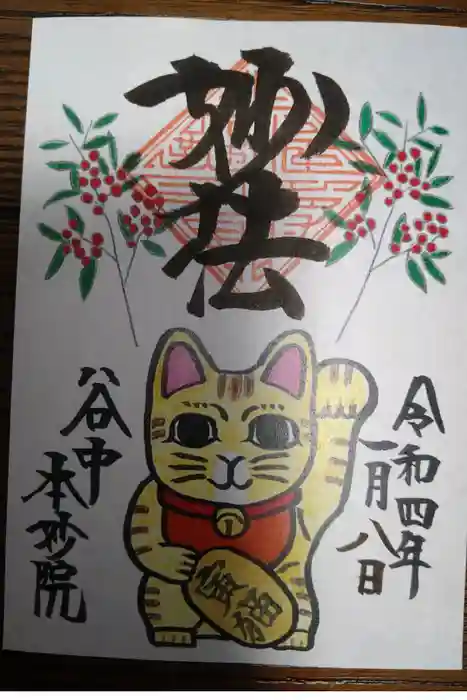 妙法
令和四年
一月八日
谷中
本妙院